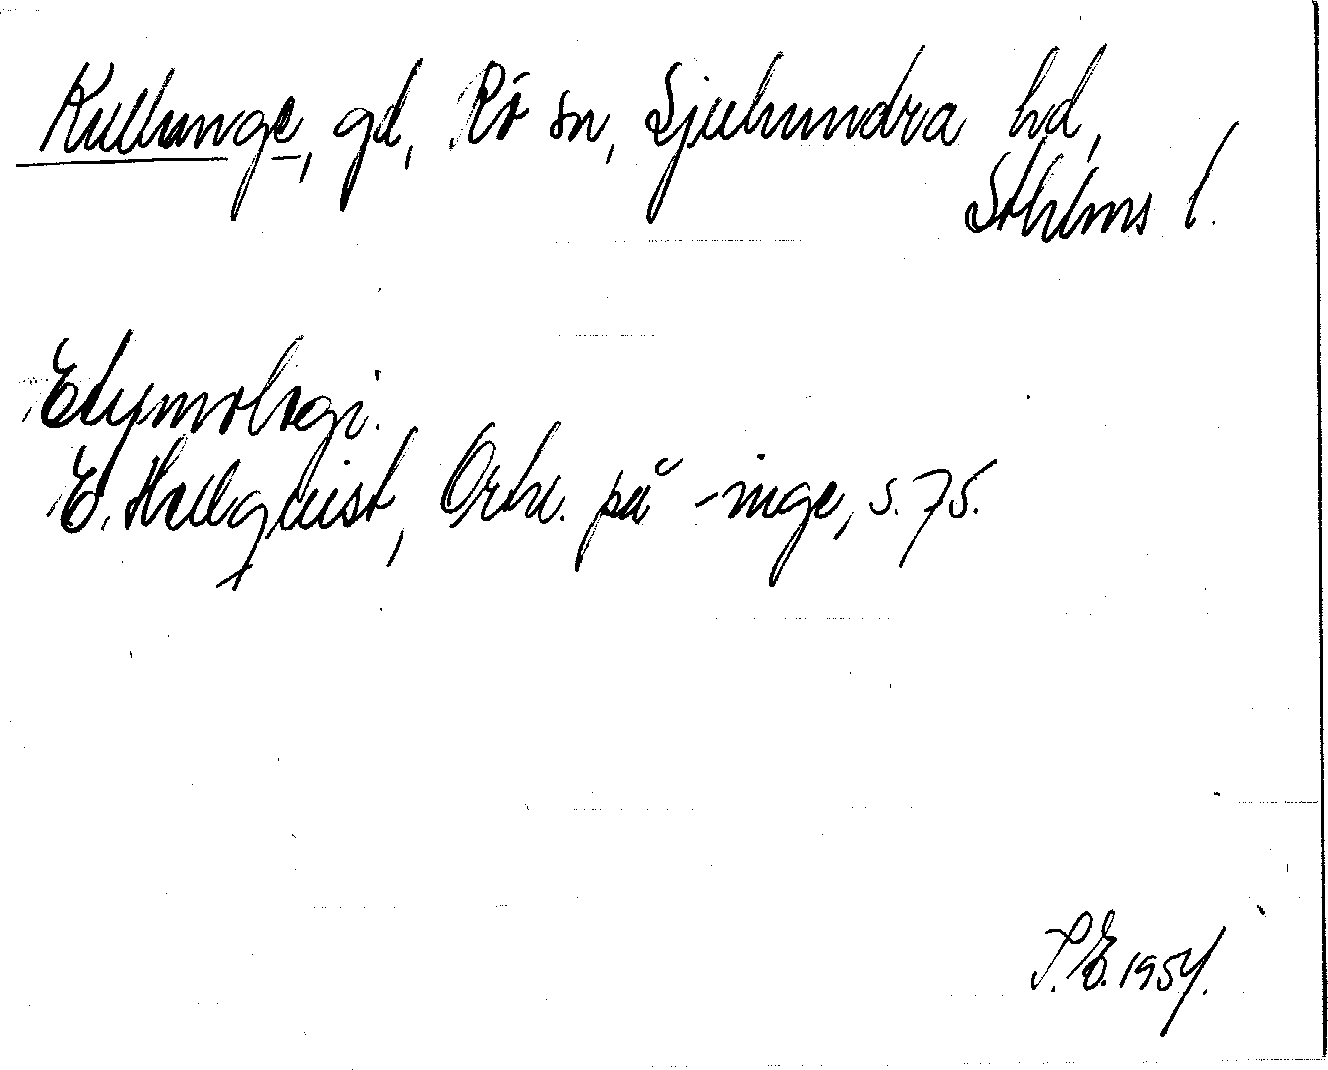 Kullunge, gd, Rö sn, Sjuhundra hd,
Sthlms l.
Etymologi.
E. Hellquist, Ortn. på -inge, s. 75.
S.E. 1954.